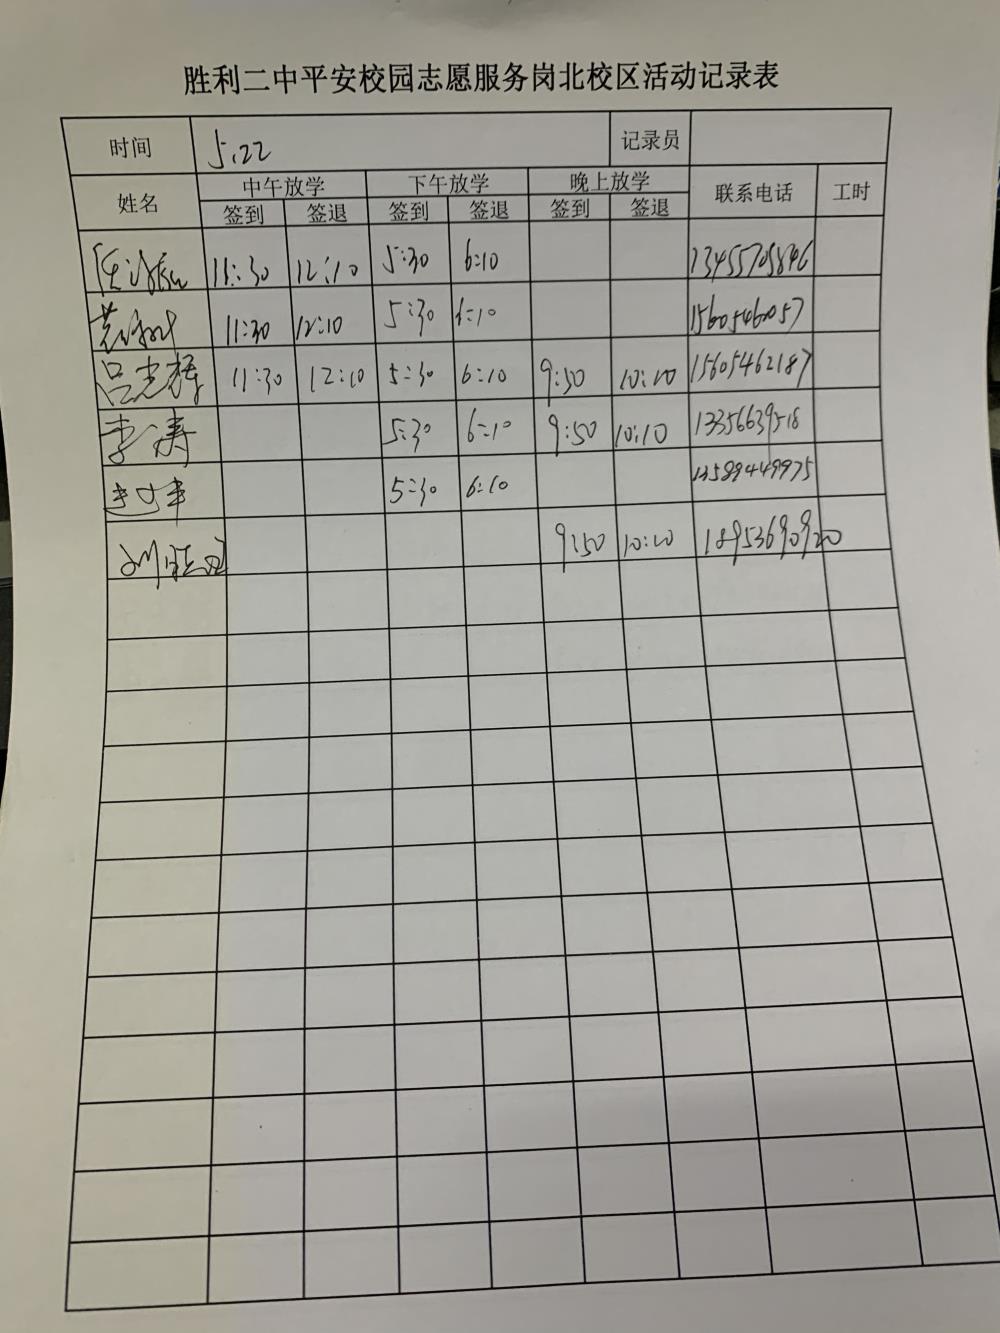 胜利二中平安校园志愿服务岗北校区活动记录表
时间 5.22 记录员
姓名 中午放学 下午放学 晚上放学 联系电话 工时
签到 签退 签到 签退 签到 签退
11:30 12:10 5:30 6:10 13455705846
11:30 12:10 5:30 6:10 15605460057
吕光辉 11:30 12:10 5:30 6:10 9:50 10:10 15605462187
李涛 5:30 6:10 9:50 10:10 13356639518
5:30 6:10 13589449975
9:50 10:10 18953690920